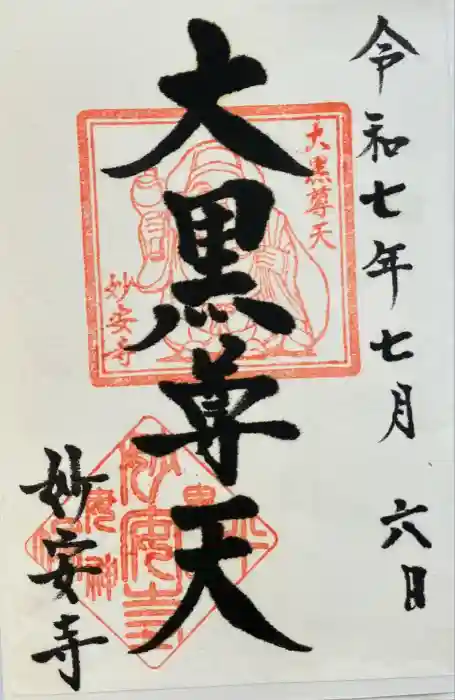 令和七年七月六日
大黒尊天
大黒尊天
妙安寺
妙安寺
妙安寺